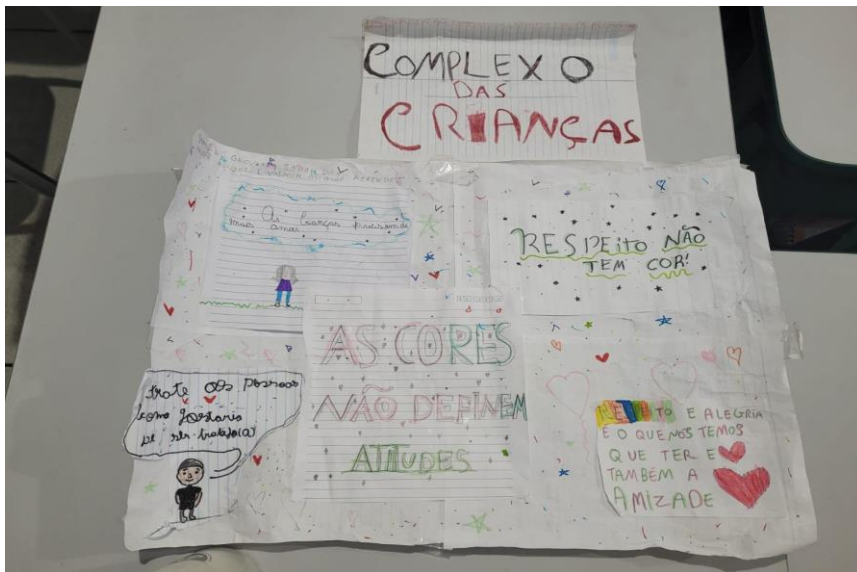 COMPLEXO
DAS
CRIANÇAS
As Crianças precisam de
mais amor
RESPEITO NÃO
TEM COR!
AS CORES
NÃO DEFINEM
ATITUDES
trate as pessoas
como gostaria
de ser tratado(a)
RESPEITO E ALEGRIA
E O QUE NOS TEMOS
QUE TER E
TAMBÉM A
AMIZADE